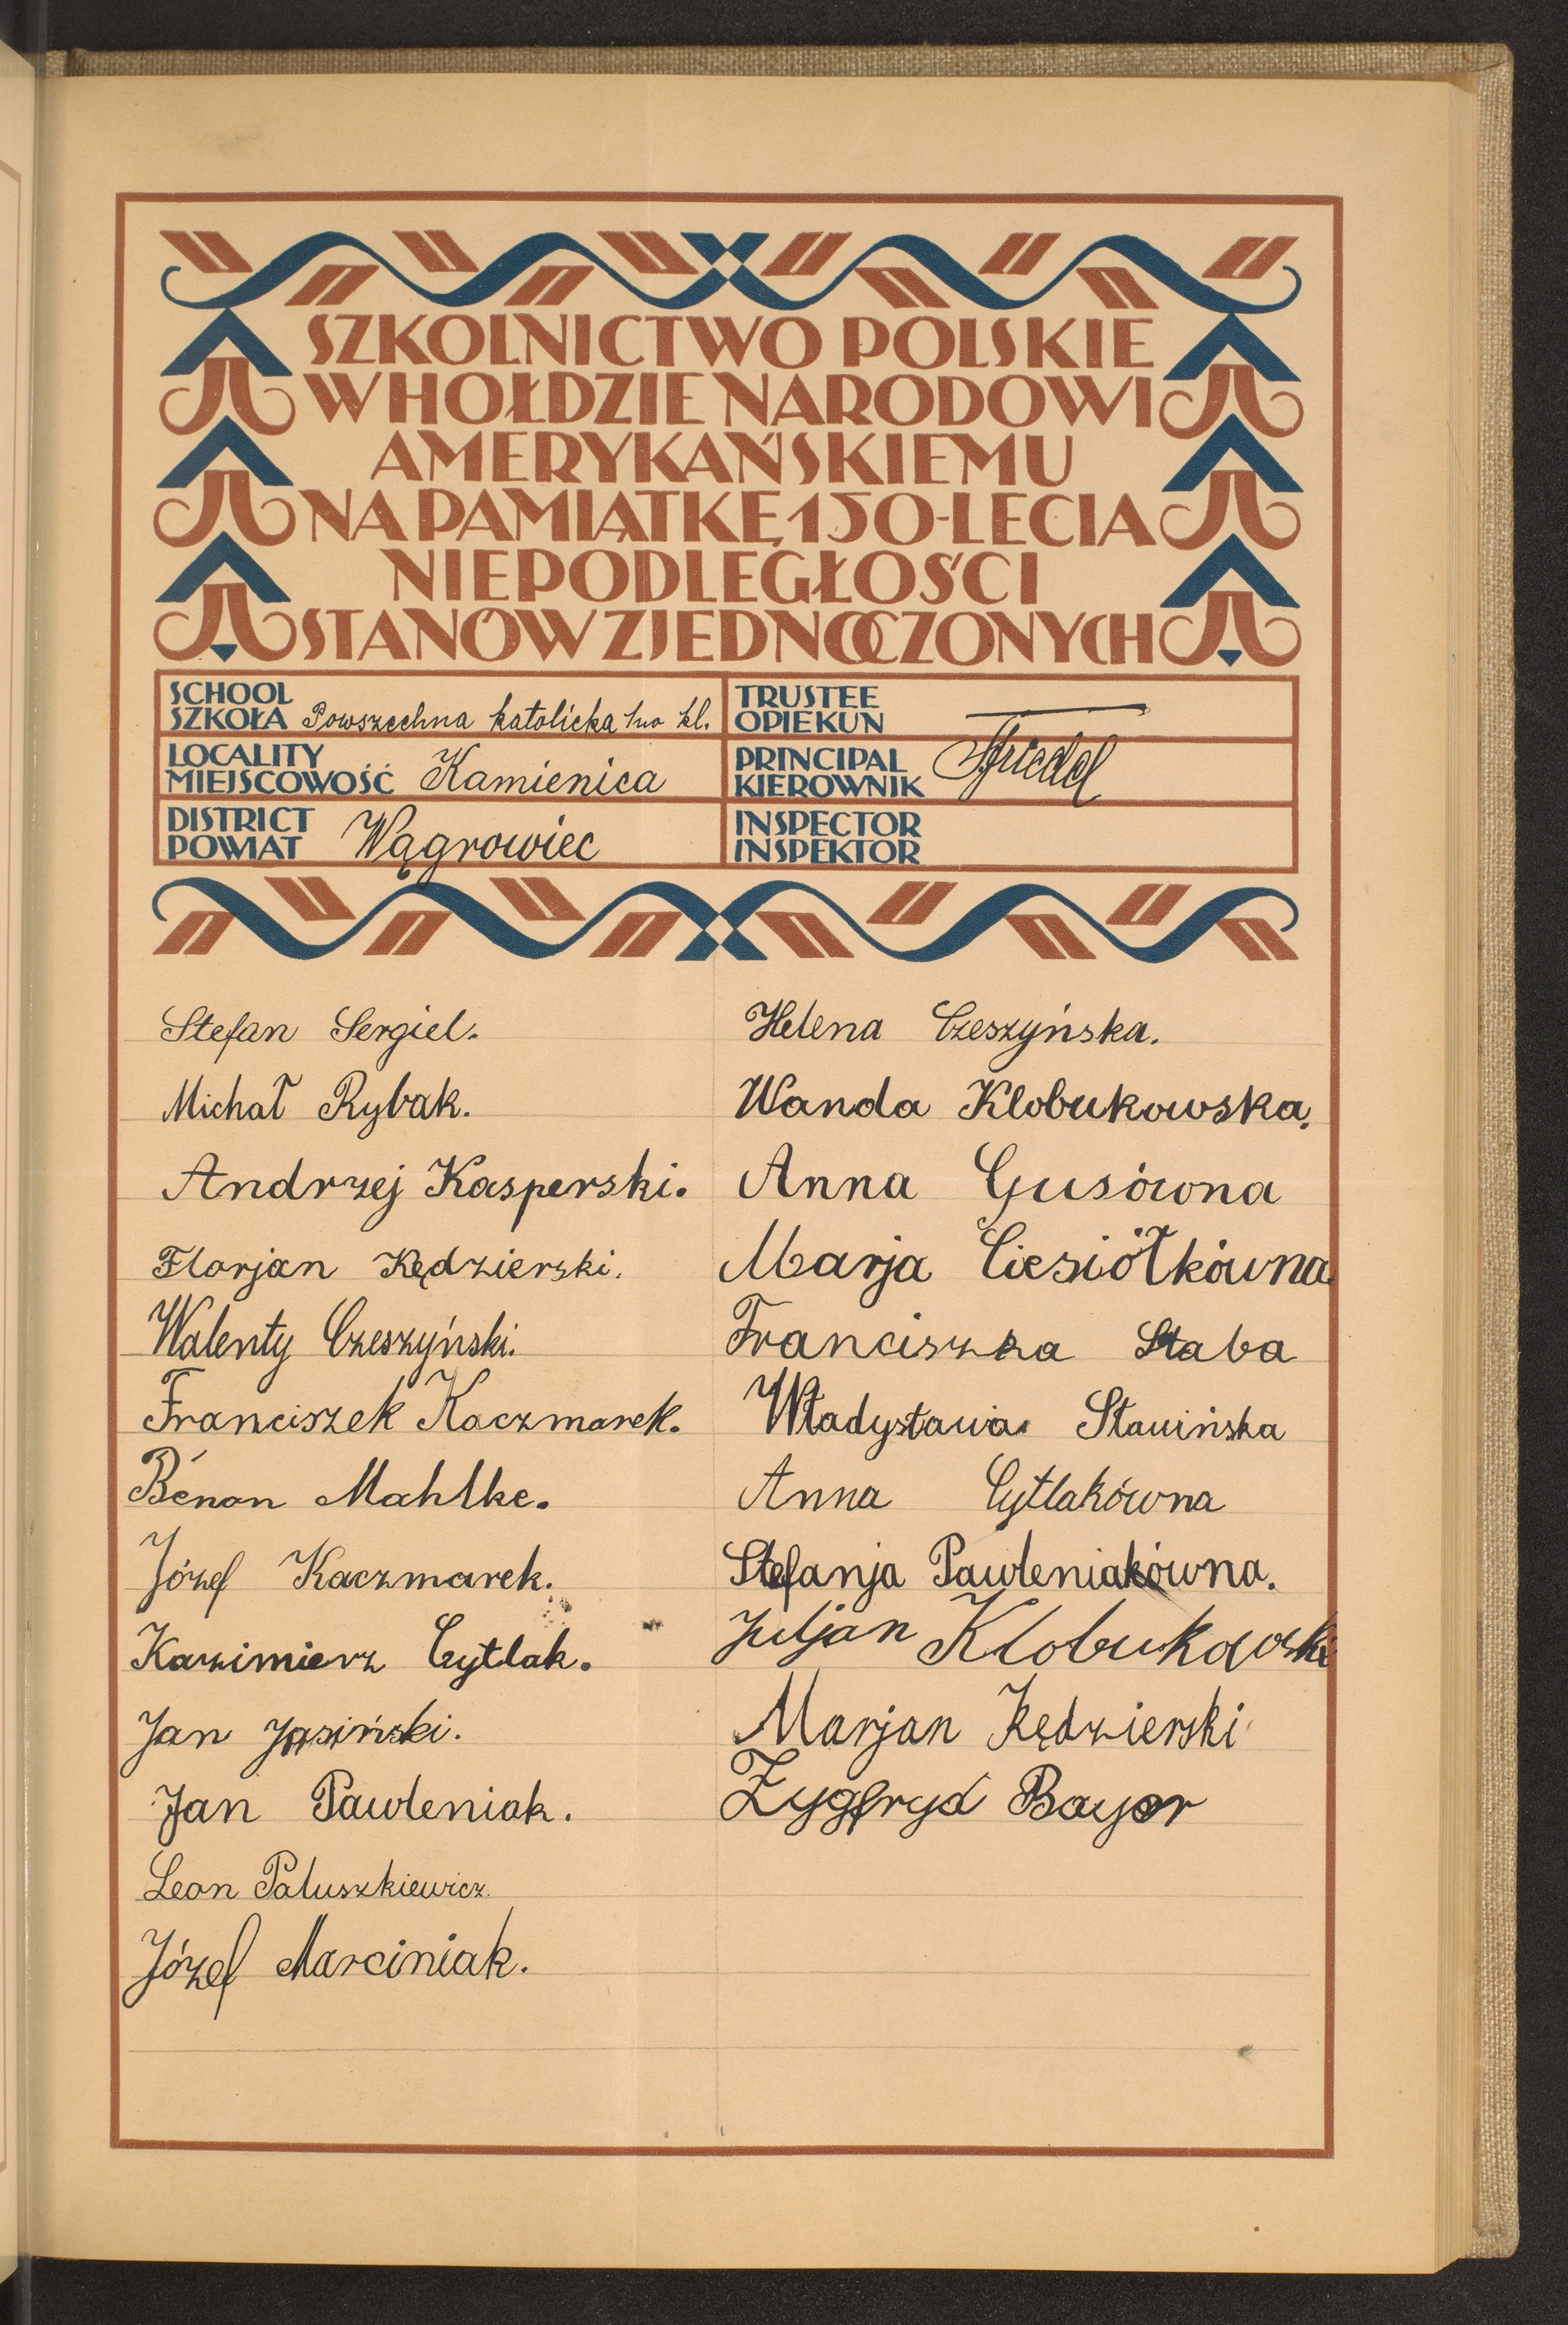 SZKOLNICTWO POLSKIE
W HOŁDZIE NARODOWI
AMERYKAŃSKIEMU
NA PAMIĄTKĘ 150-LECIA
NIEPODLEGŁOŚCI
STANÓW ZJEDNOCZONYCH
SCHOOL
SZKOŁA Powszechna katolicka 1-no kl.
LOCALITY
MIEJSCOWOŚĆ Kamienica
DISTRICT
POWIAT Wągrowiec
TRUSTEE
OPIEKUN —
PRINCIPAL
KIEROWNIK
INSPECTOR
INSPEKTOR
Stefan Sergiel.
Michał Rybak.
Andrzej Kasperski.
Florjan Kędzierski.
Walenty Czeszyński.
Franciszek Kaczmarek.
Bénon Mahlke.
Józef Kaczmarek.
Kazimierz Cytlak.
Jan Jasiński.
Jan Pawleniak.
Leon Paluszkiewicz.
Józef Marciniak.
Helena Czeszyńska.
Wanda Klobukowska.
Anna Gusówna
Marja Ciesiółkówna
Franciszka Staba
Władysława Stawińska
Anna Cytlakówna
Stefanja Pawleniakówna.
Juljan Klobukowski
Marjan Kędzierski
Zygfryd Bayer